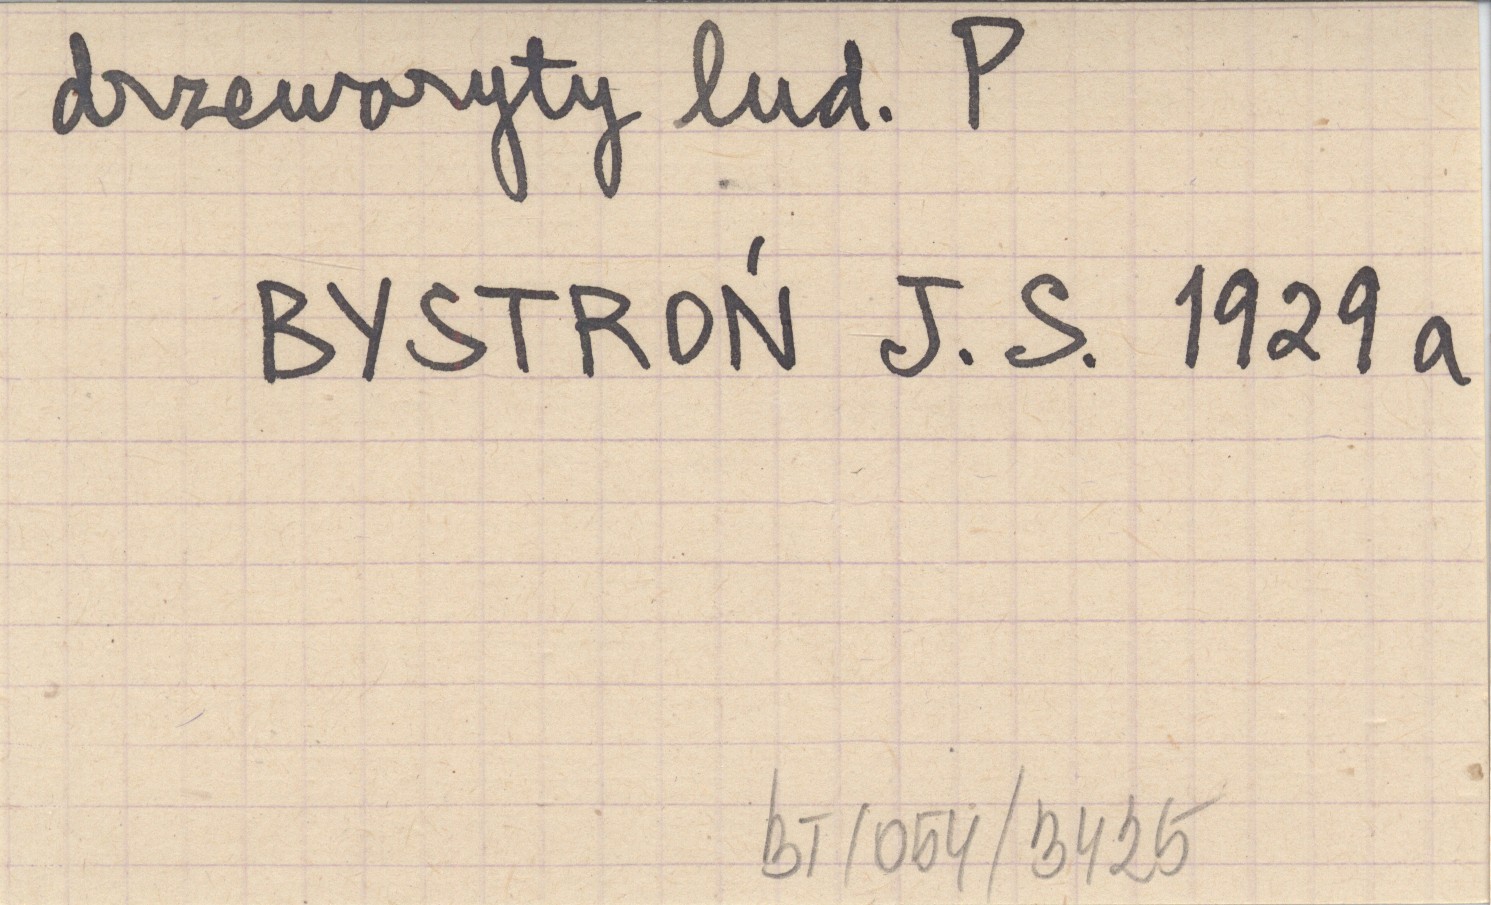 drzeworyty lud. P
BYSTROŃ J. S. 1929 a
BT/054/3425